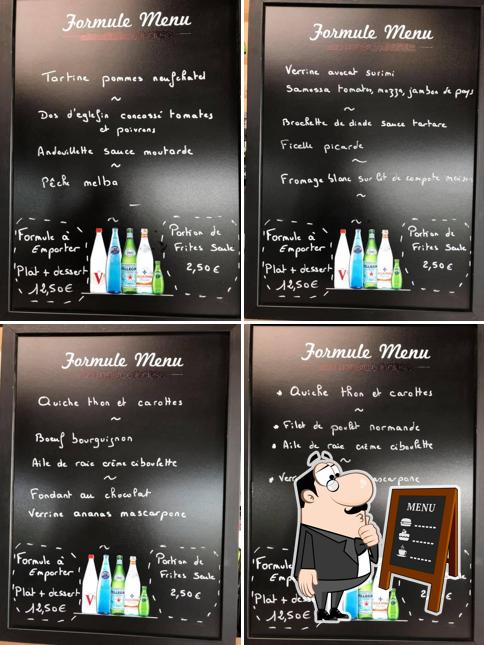 Formule Menu
Tartine pommes neufchatel
~
Dos d'eglefin concassé tomates
et poivrons
Andouillette sauce moutarde
~
Pêche melba
~
Formule à
Emporter
Plat + dessert
12,50€
Portion de
Frites Seule
2,50€
Formule Menu
Verrine avocat surimi
Samossa tomates, mozza, jambon de pays
~
Brochette de dinde sauce tartare
Ficelle picarde
~
Fromage blanc sur lit de compote maison
~
Formule à
Emporter
Plat + dessert
12,50€
Portion de
Frites Seule
2,50€
Formule Menu
Quiche thon et carottes
~
Bœuf bourguignon
Aile de raie crème ciboulette
~
Fondant au chocolat
Verrine ananas mascarpone
~
Formule à
Emporter
Plat + dessert
12,50€
Portion de
Frites Seule
2,50€
Formule Menu
Quiche thon et carottes
~
Filet de poulet normande
Aile de raie crème ciboulette
~
mascarpone
MENU
12,50€